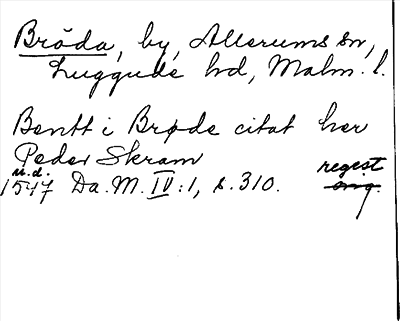 Bröda, by, Allerums sn,
Luggude hd, Malm. l.
Bentt i Brøde citat her
Peder Skram
u.d.
1547 Da. M. IV:1, s. 310.
regist
orig.